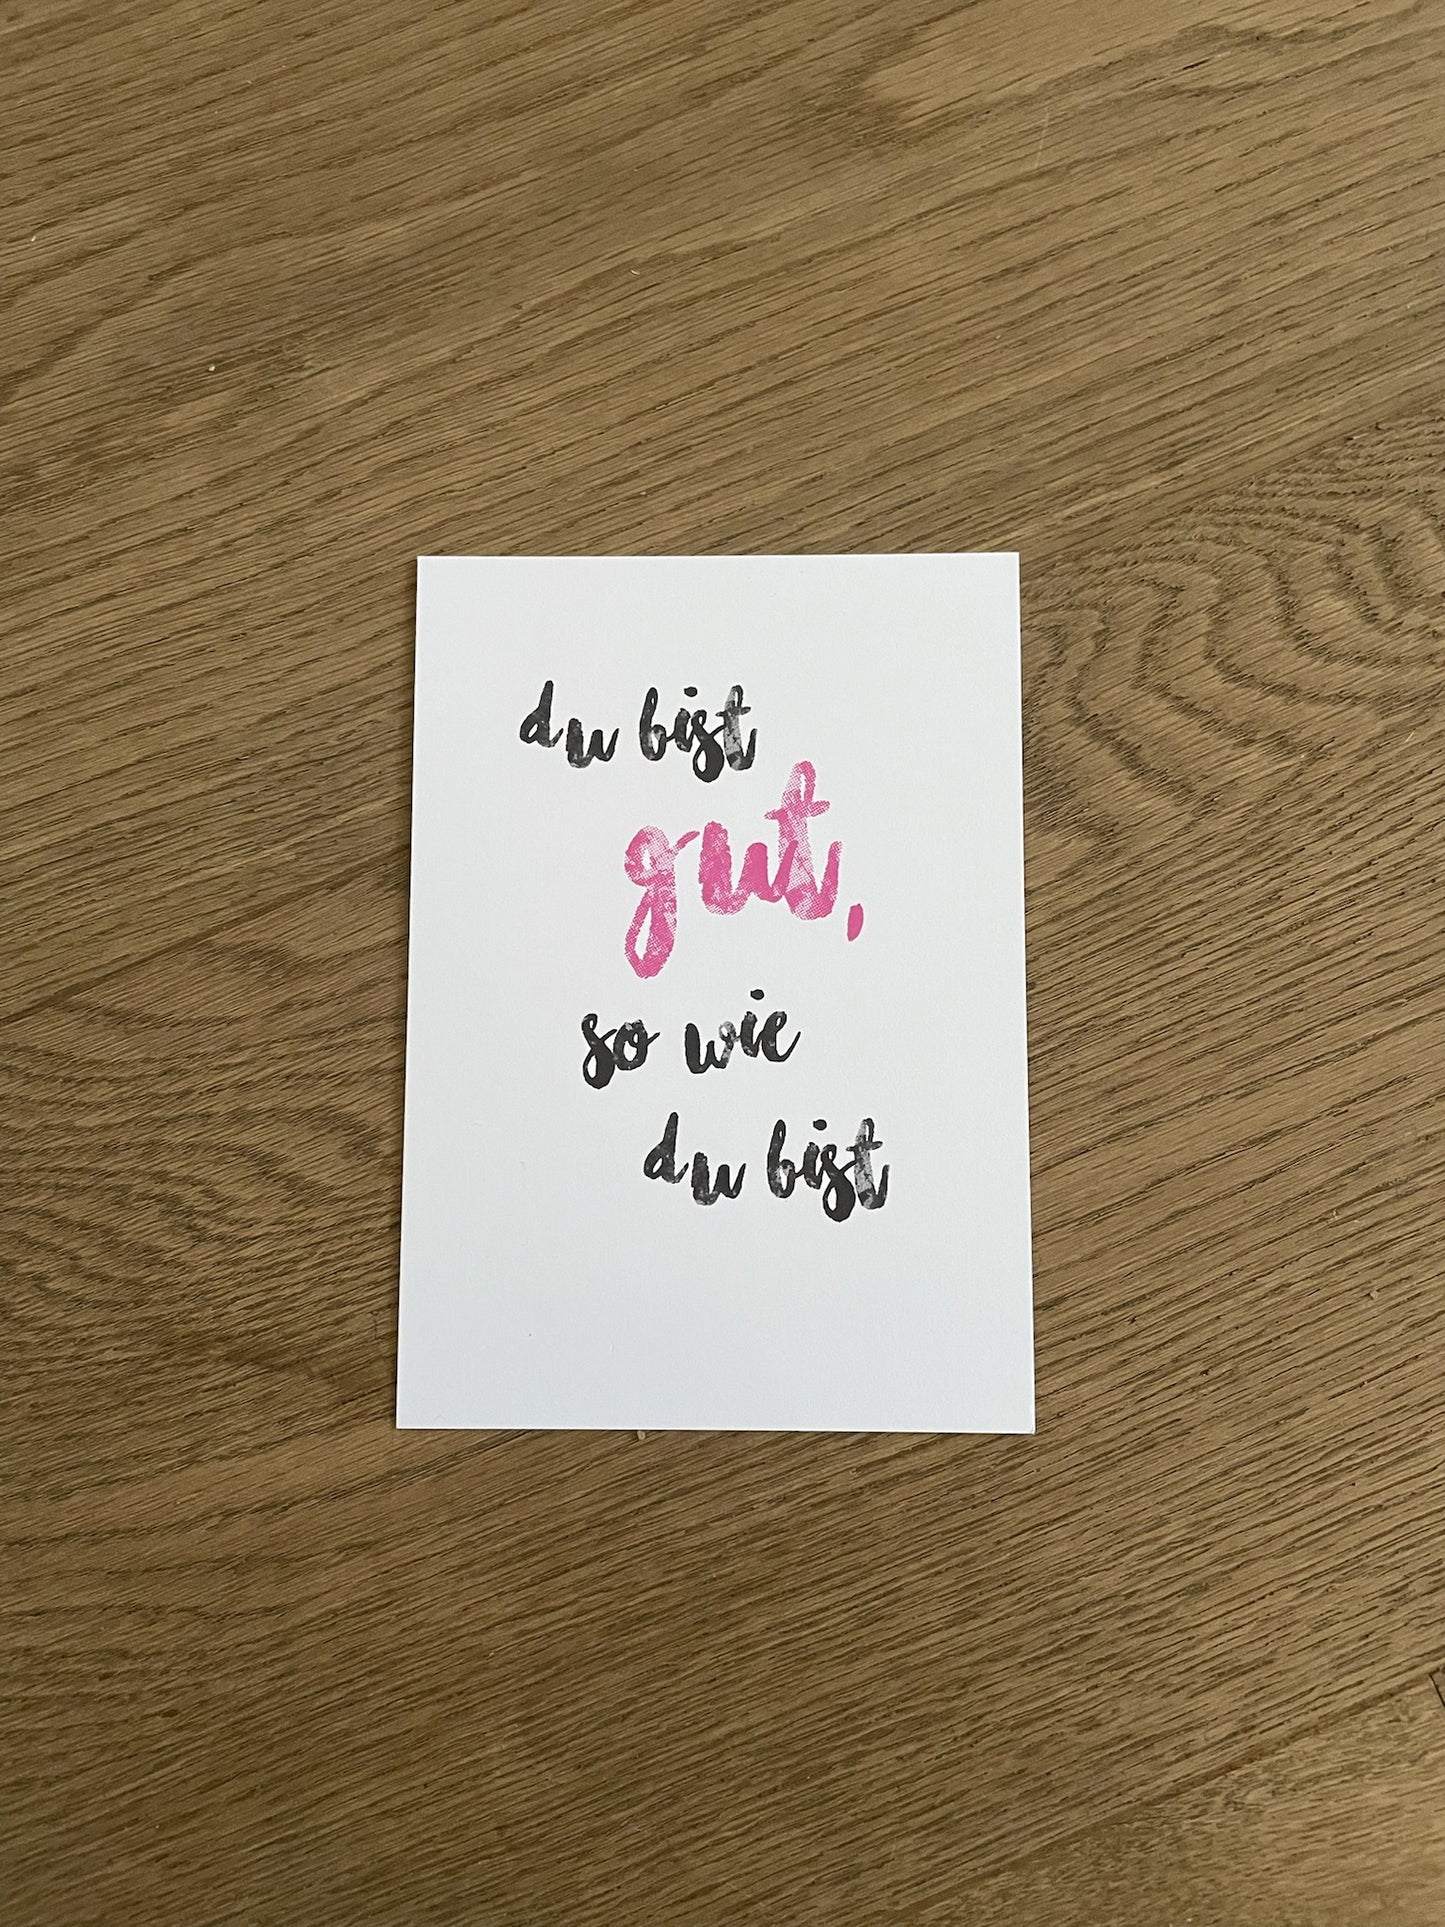 du bist
gut,
so wie
du bist